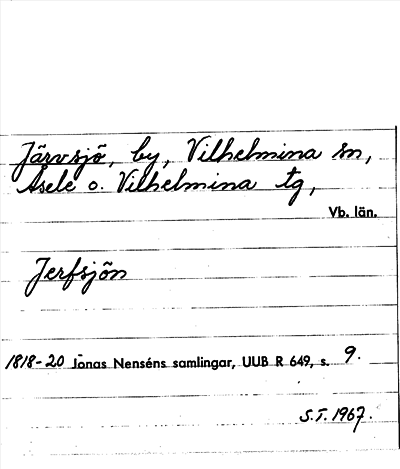 Järvsjö, by, Vilhelmina sn,
Åsele o. Vilhelmina tg,
Vb. län.
Jerfsjön
1818-20 Jonas Nenséns samlingar, UUB R 649, s. 9.
S.T. 1967.